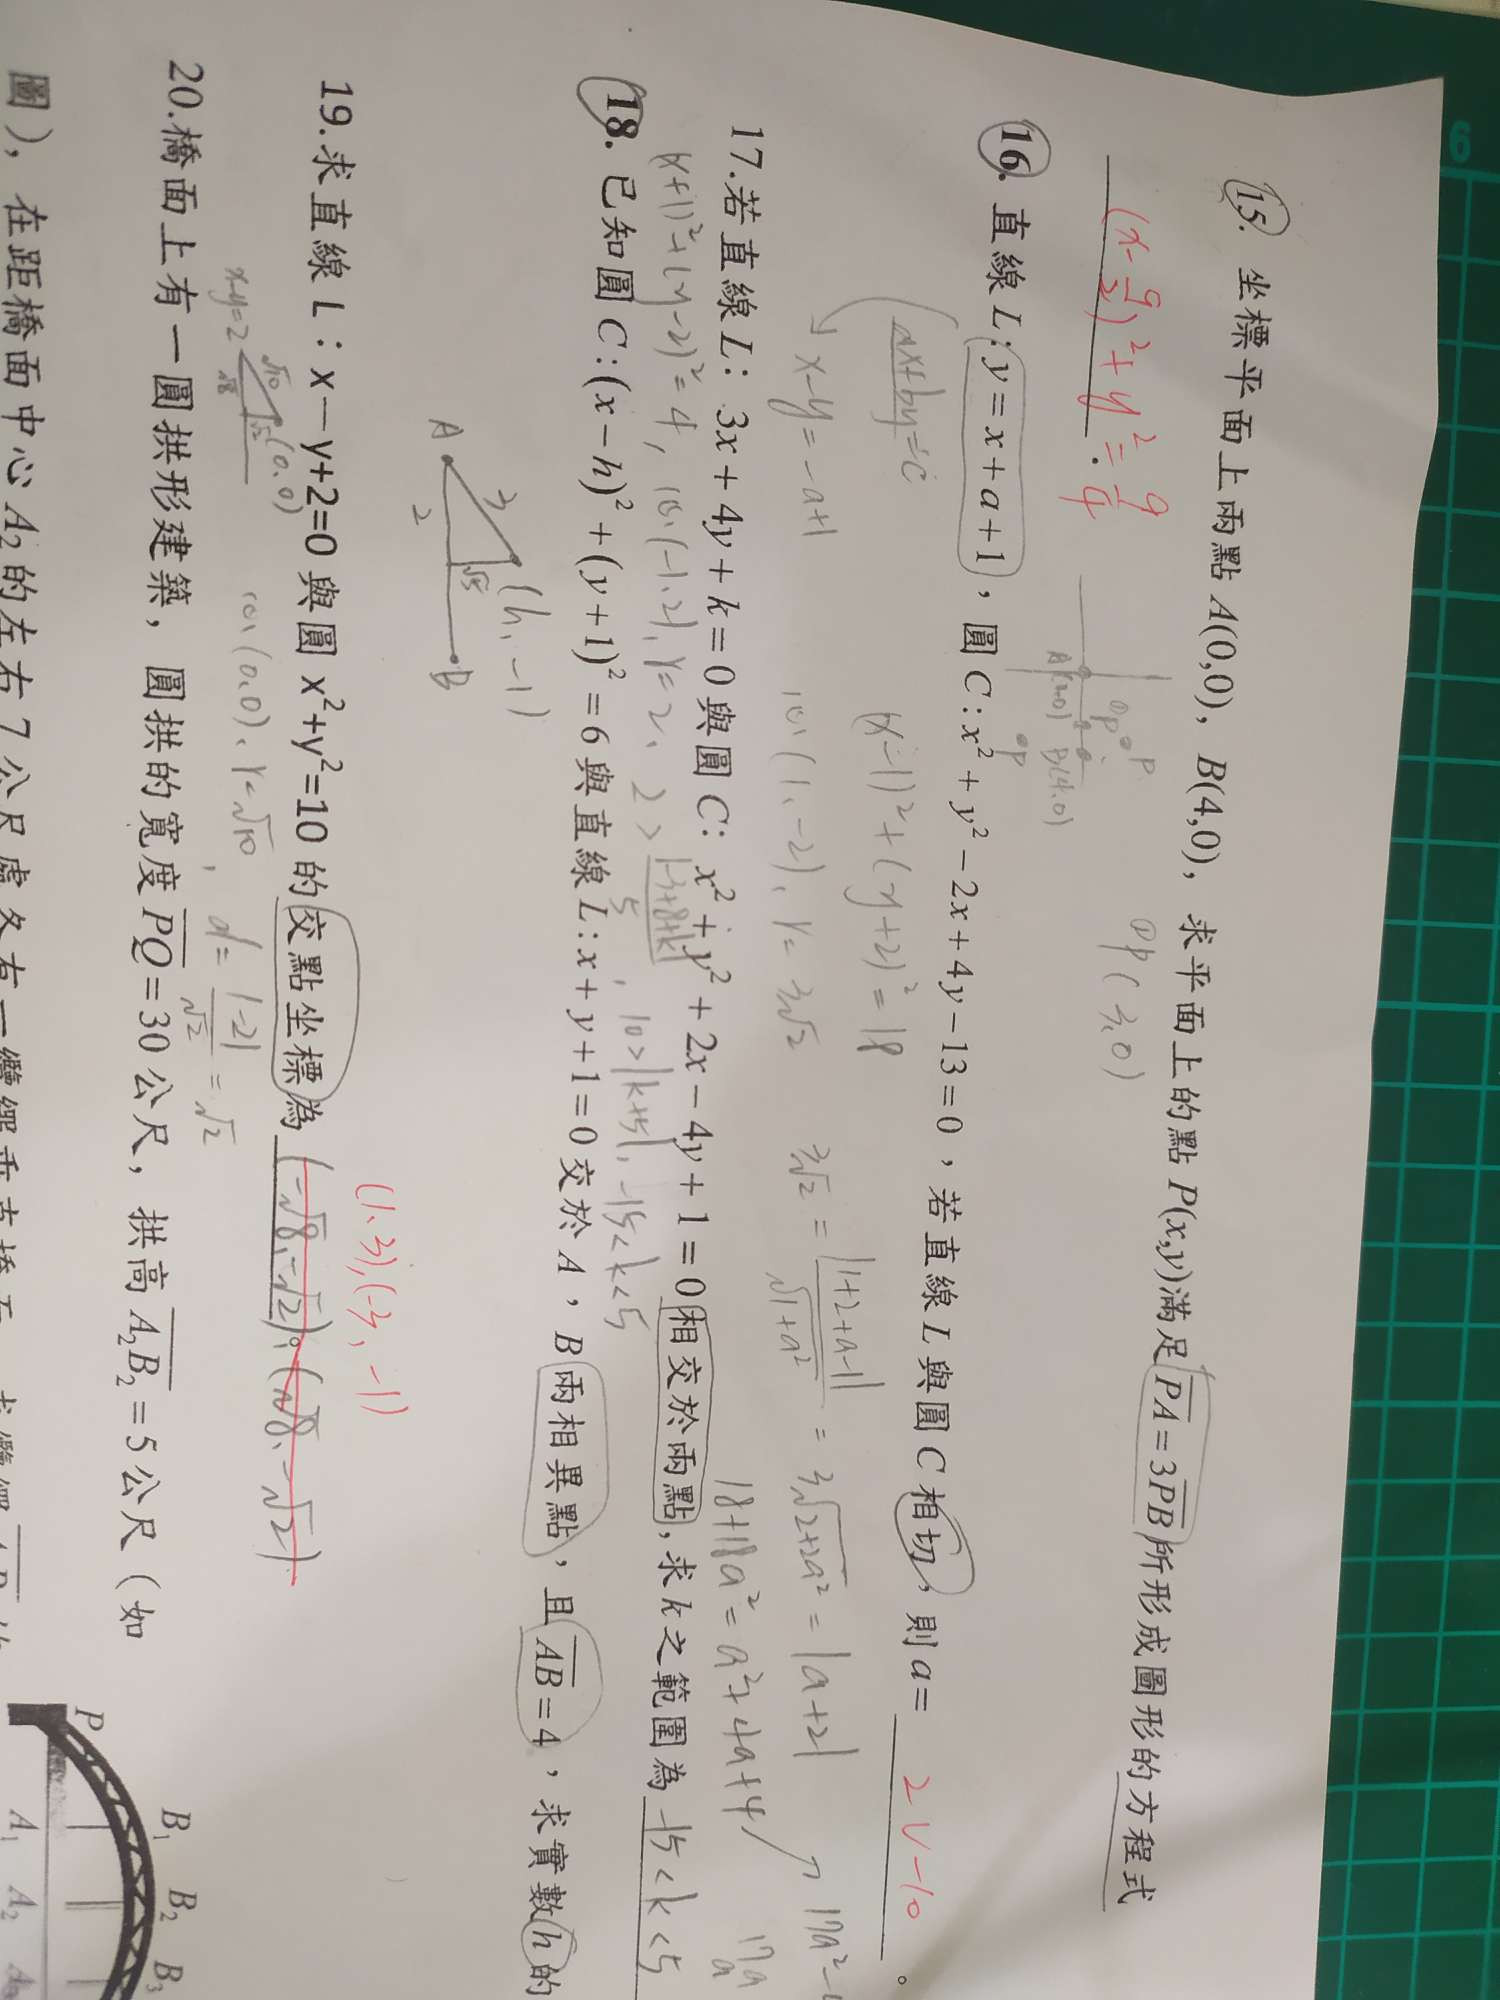 6
15. 坐標平面上兩點 A(0,0), B(4,0), 求平面上的點 P(x,y)滿足 PA=3PB 所形成圖形的方程式
(x-9/2)²+y²=9/4
A(0,0) B(4,0)
(3,0)
16. 直線 L: y=x+a+1, 圓 C: x²+y²-2x+4y-13=0, 若直線 L 與圓 C 相切, 則 a= 2 V -10 。
ax+by=c
(x-1)²+(y+2)²=18
x-y=-a+1
(1,-2), r=3√2
3√2=|1+2+a-1|/√1+a² = 3√2+2a² = |a+2|
18+18a²=a²+4a+4
17.若直線 L: 3x+4y+k=0 與圓 C: x²+y²+2x-4y+1=0 相交於兩點, 求 k 之範圍為 -15<k<5
(x+1)²+(y-2)²=4, (-1,2), r=2, 2>|-3+8+k|/5, 10>|k+5|, -15<k<5
18. 已知圓 C:(x-h)²+(y+1)²=6 與直線 L: x+y+1=0 交於 A, B 兩相異點, 且 AB=4, 求實數 h 的
(h,-1)
A 2 B
(1,3),(-3,-1)
19.求直線 L: x-y+2=0 與圓 x²+y²=10 的交點坐標為 (-√8,-√2), (√8,-√2)
x-y=2 √10 √8 √2 (0,0) (0,0), r=√10, d=|-2|/√2=√2
20.橋面上有一圓拱形建築, 圓拱的寬度 PQ=30 公尺, 拱高 A₂B₂=5 公尺 (如
圖), 在距橋面中心 A₂ 的左右 7 公尺處
P B₁ B₂ B₃
A₁ A₂